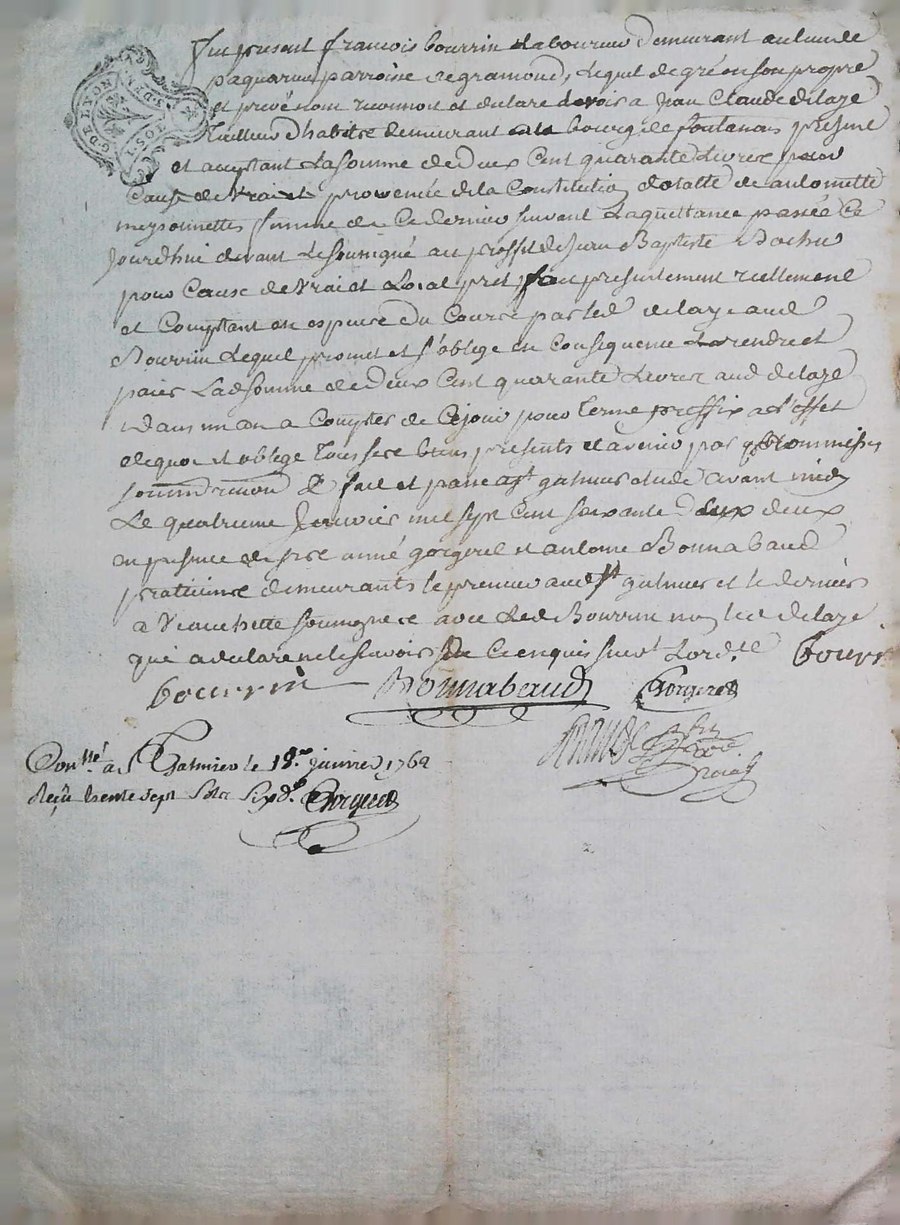 G. DE LYON
Fut present francois bourrin laboureur demeurant au lieu de
paquarin parroisse de gramond, lequel de gré en son propre
et privé nom reconnoit et declare devoir a jean Claude delaze
Tailleur d'habits demeurant au bourg de fontanais present
et acceptant La somme de Deux Cent quarante Livres pour
Cause de Vrai et provenüe de la Constitution dotalle de antoinette
meysonnette femme de Ce dernier suivant La quittance passée Ce
jourdhui devant Le soussigné au proffit de jean Baptiste
pour Cause de Vrai et Loial pret fait presentement reellement
et Comptant en espece du Cours par led delaze aud
Bourrin Lequel promet et s'oblige en Consequence La rendre et
paier Lad somme de Deux Cent quarante Livres aud delaze
Dans un an a Compter de Cejour pour terme preffix a L'effet
de quoi il oblige Tous ses biens presents et avenir par promission
soumission fait et passé a st galmier etude avant midy
Le quatrieme janvier mil sept Cent soixante deux deux
en presence de sire aimé gorgeret et antoine Bonnabaud
praticiens demeurants le premier aud st galmier et le dernier
a Veauchette soussignes avec Led Bourrin non led delaze
qui a declaré ne le scavoir de Ce enquis suivt Lord.ce bourrin
bourrin Bonnabaud Gorgeret
Con.llé a St Galmier le 18.me janvier 1762
Reçu trente sept sols six d.s Gorgeret